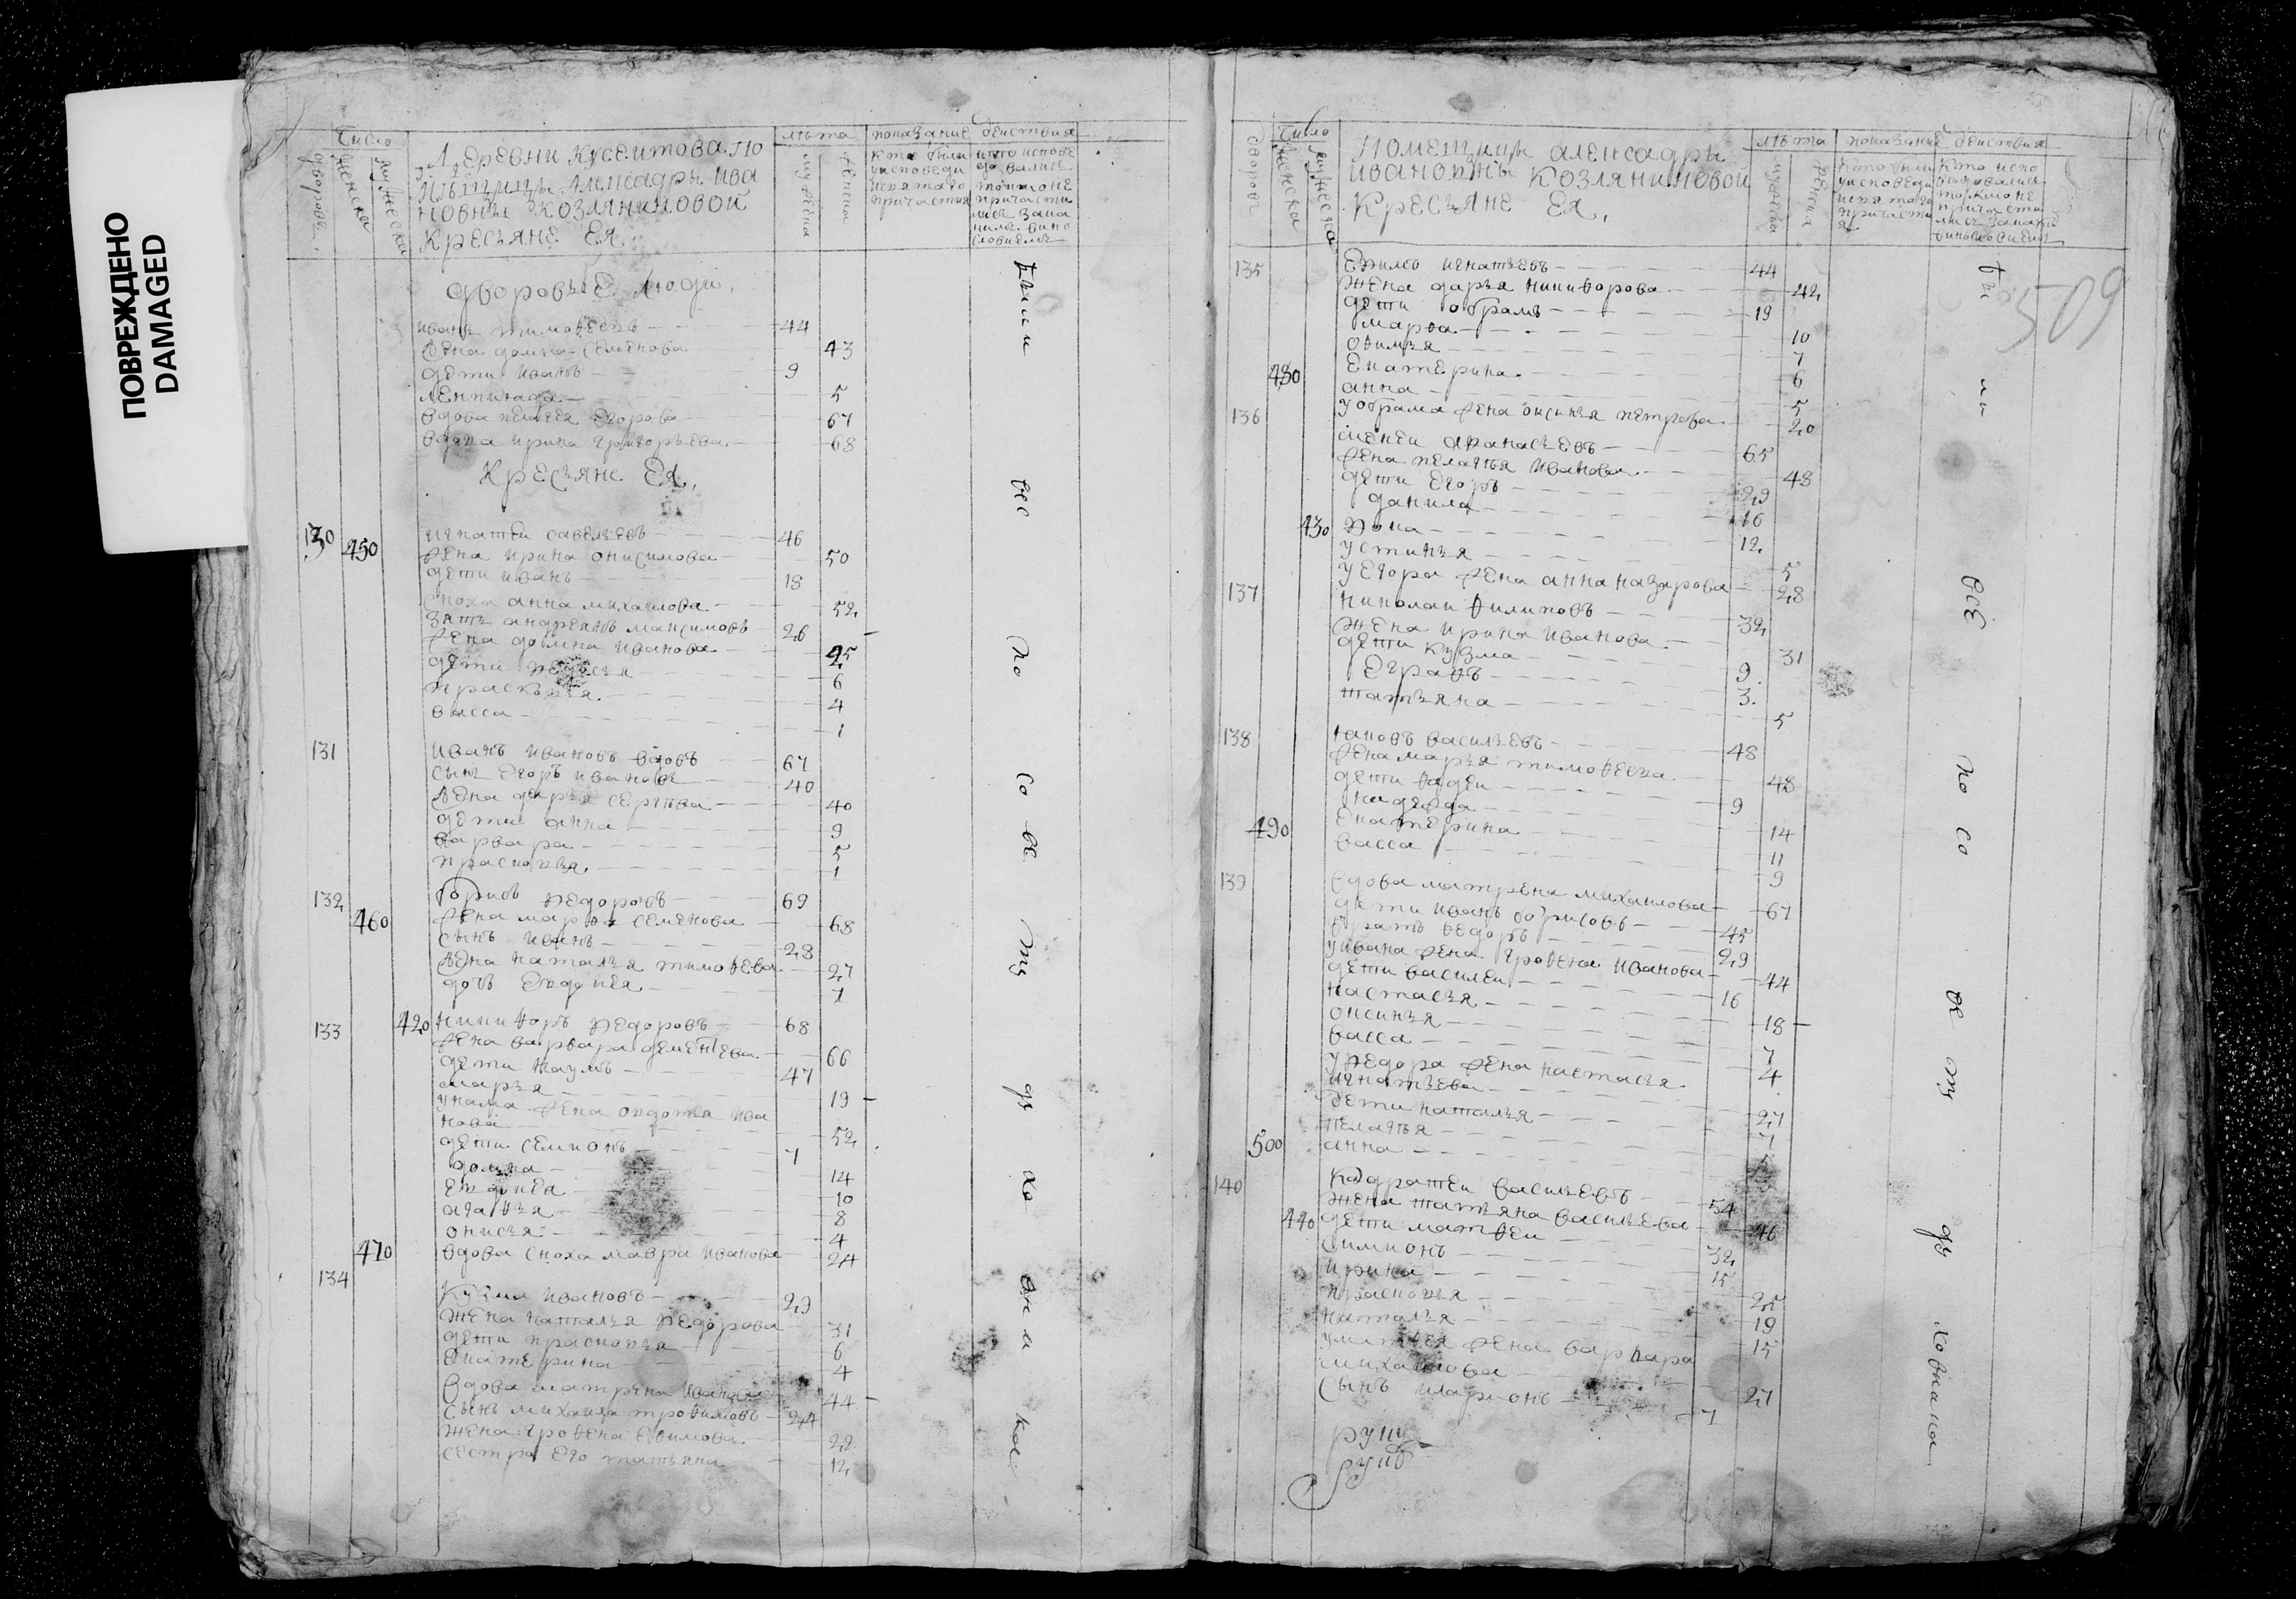 ПОВРЕЖДЕНО
DAMAGED
число
дворовъ
женска
мужеска
деревни Кусеитова по
мѣщицы Алеѯадры Ива
новны Козляниновой
Кресьяне Ея
лѣта
мужеска
женска
показание действия
кто были
у исповеди
и святаго
причастия
кто испове
довались
токмо не
причасти
лись за ка
кимъ вино
словиемъ
дворовые люди
иванъ тимофеевъ 44
жена домна семенова 43
дети иванъ 9
5
вдова пелагея егорова 67
вдова ирина григорьева 68
Кресьяне Ея
130 450 игнатеи савельевъ 46
жена ирина онисимова 50
дети иванъ 18
сноха анна михаилова 52
зять андреянъ максимовъ 26
жена домна иванова 25
дети федосья 6
прасковья 4
васса 1
131 иванъ ивановъ вдовъ 67
сынъ егоръ ивановъ 40
жена дарья сергеева 40
дети анна 9
варвара 5
прасковья 1
132 борисъ федоровъ 69
460 жена марфа семенова 68
сынъ иванъ 28
жена наталья тимофеева 27
дочь евдокея 1
133 420 никифоръ федоровъ 68
жена варвара дементева 66
дети наумъ 47
марья 19
у наума жена овдотья ива
нова 52
дети семионъ 7
домна 14
евдокея 10
агафья 8
онисья 4
470 вдова сноха мавра иванова 24
134 Кузма ивановъ 29
жена наталья федорова 31
дети прасковья 6
екатерина 4
вдова матрена иванова 44
сынъ михаила трофимовъ 24
жена грофена ефимова 22
сестра его татьяна 12
были
все
по
со
ве
ту
ду
хо
вни
ка
509
число
дворовъ
женска
мужеска
Помещицы алеѯадры
ивановны Козляниновой
Кресьяне Ея
лѣта
мужеска
женска
показание действия
кто были
у исповеди
и святаго
причасти
я
кто испо
ведовались
токмо не
причасти
лись за какимъ
винословиемъ
135 Ефимъ игнатьевъ 44
жена дарья никифорова 42
дети обрамъ 19
марфа 10
офимья 7
480 екатерина 6
анна 5
у обрама жена оксинья петрова 20
136 афанасьевъ 65
жена пелагья иванова 48
дети егоръ 29
данила 16
430 фока 12
устинья 5
у егора жена анна назарова 28
137 николаи филиповъ 32
жена ирина иванова 31
дети кузма 9
евграфъ 3
татьяна 5
138 iаковъ васильевъ 48
жена марья тимофеева 48
дети фадеи 9
надежда 14
490 екатерина 11
васса 9
139 вдова матрена михаилова 67
дети иванъ борисовъ 45
братъ федоръ 29
у ивана жена грофена иванова 44
дети василеи 16
настасья 18
оксинья 7
васса 4
у федора жена настасья
игнатьева 27
дети наталья 7
пелагья
500 анна
140 Кодратеи васильевъ 54
жена татьяна васильева 46
440 дети матфеи 32
симионъ 15
ирина 25
прасковья 19
наталья 15
у матфея жена варвара
михаилова 27
сынъ иларионъ 1
бы
ли
все
по
со
ве
ту
ду
ховника
руку